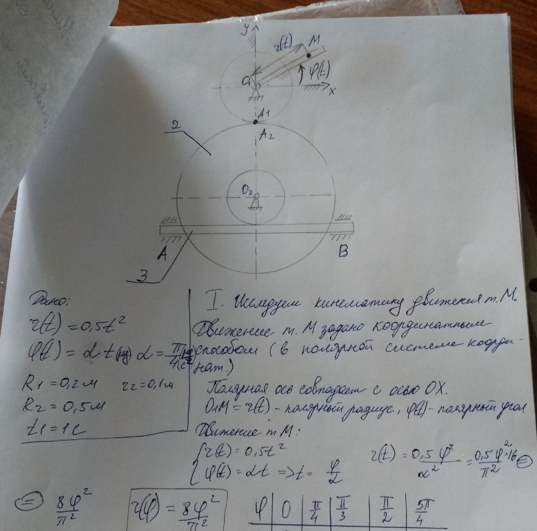 y
r(t)
M
O₁
φ(t)
x
A1
A2
2
O₂
A
B
3
Дано:
r(t) = 0,5t²
φ(t) = αt α = π/4
R1 = 0,2м r2 = 0,1м
R2 = 0,5м
t1 = 1с
I. Исследуем кинематику движения т. М.
Движение т. М задано координатным
способом (в полярной системе коорди-
нат.)
Полярная ось совпадает с осью OX.
O1M = r(t) - полярный радиус, φ(t) - полярный угол
Движение т М:
{ r(t) = 0,5t²
φ(t) = αt => t = φ/2
r(t) = 0,5 φ²/α² = 0,5φ²·16/π² =
= 8φ²/π²
r(φ) = 8φ²/π²
φ | 0 | π/4 | π/3 | π/2 | 5π/4